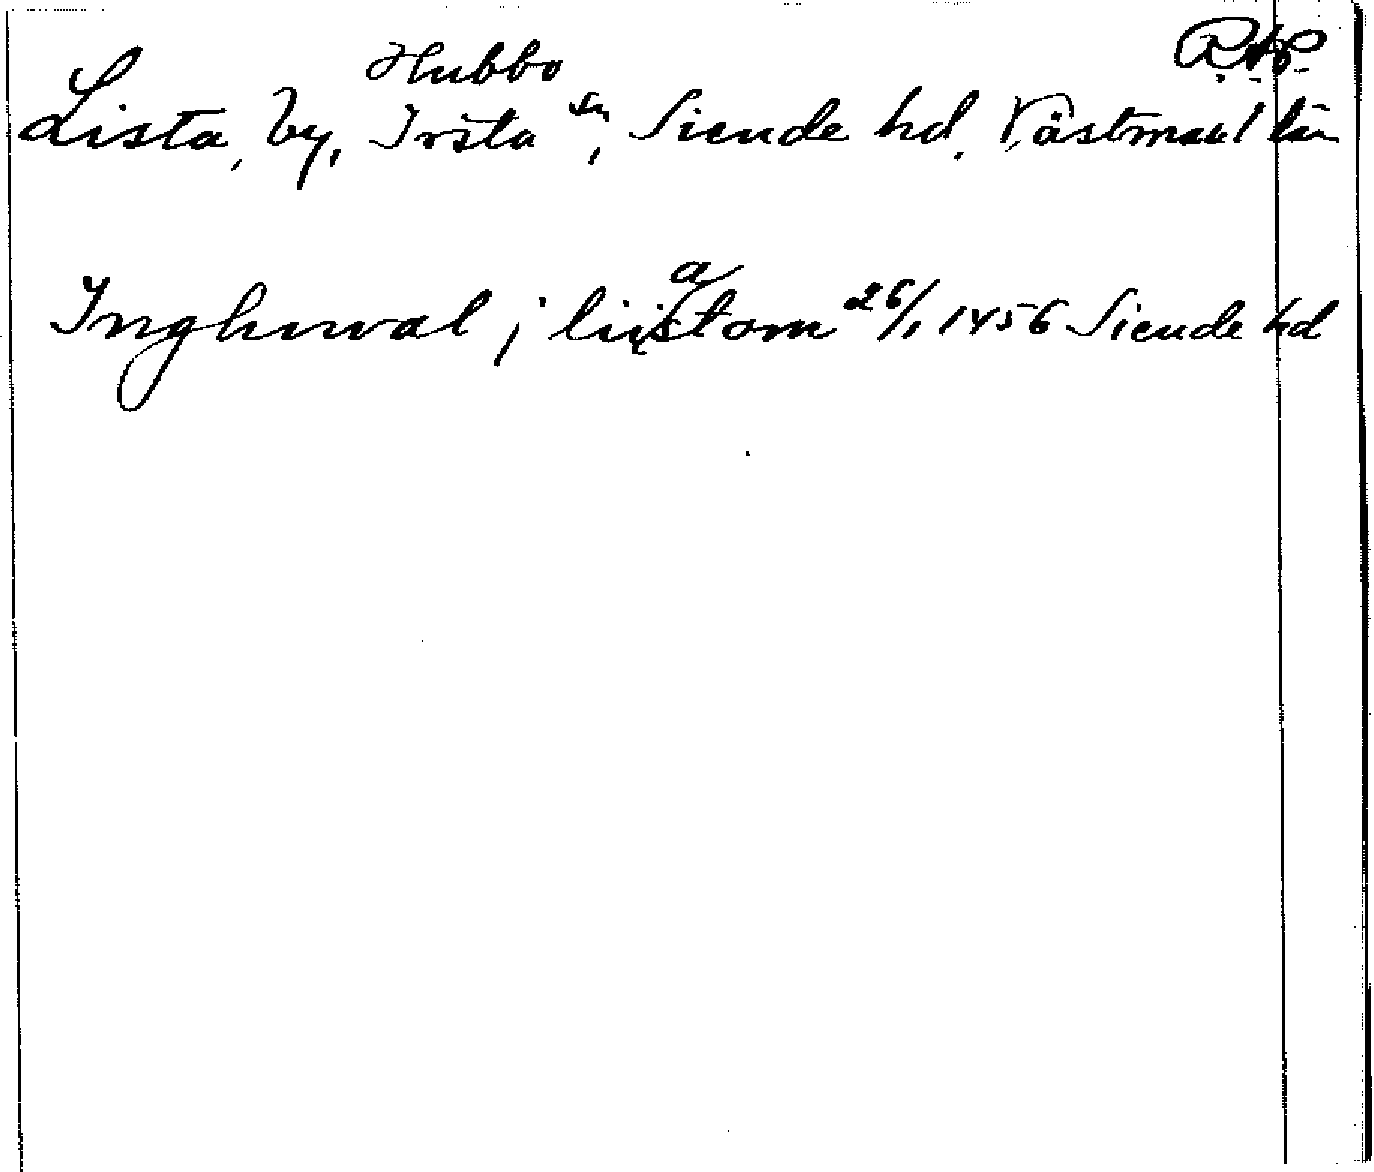 Hubbo
Lista, by, Irsta sn, Siende hd. Västmanl län
a
Inghewal j liistom 26/1 1456 Siende hd